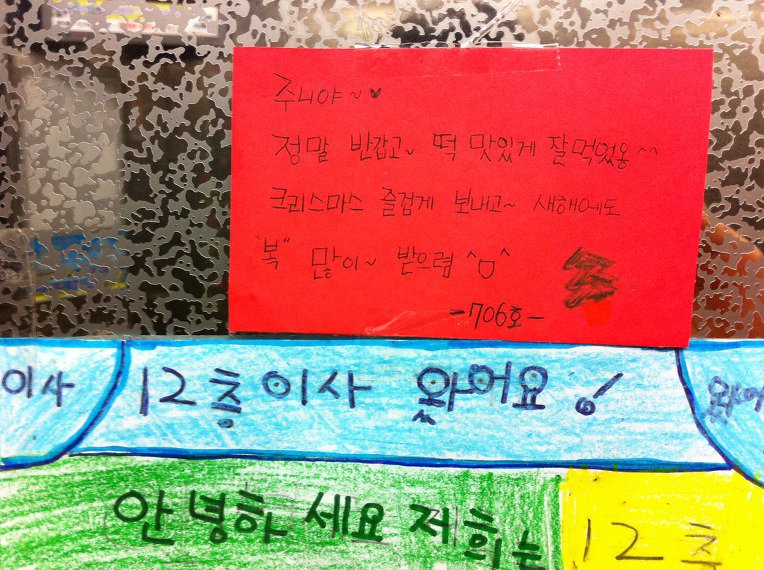 주니야~♥
정말 반갑고~ 떡 맛있게 잘먹었옹^^
크리스마스 즐겁게 보내고~ 새해에도
"복" 많이~ 받으렴 ^ㅁ^
-706호-
이사 12층이사 왔어요! 왔어
안녕하세요 저희는 12층